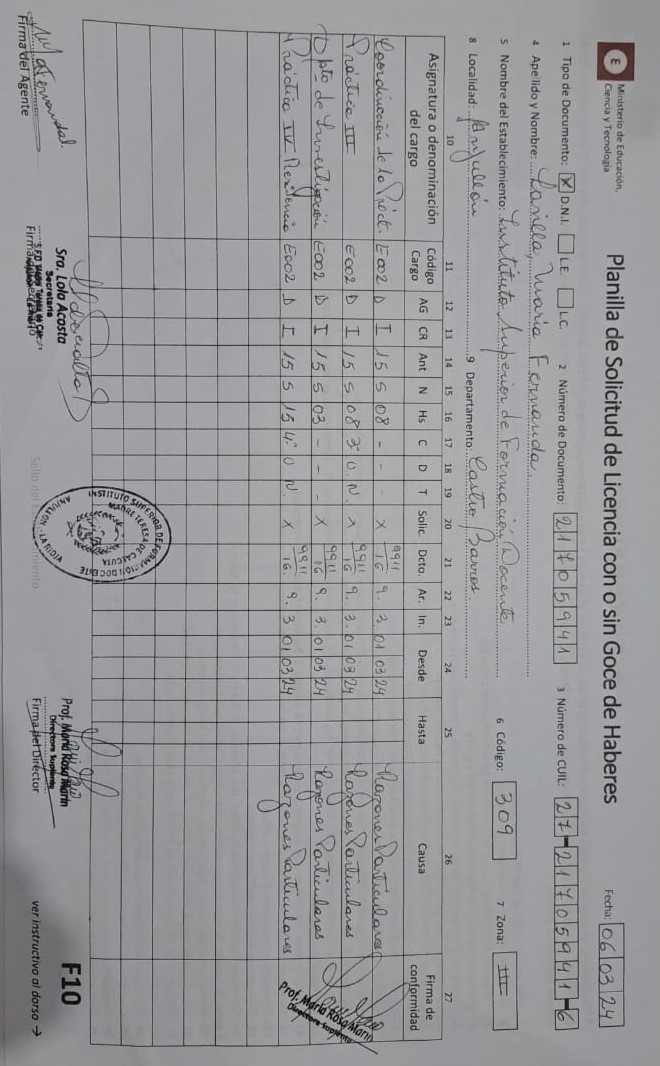 E Ministerio de Educación,
Ciencia y Tecnología
Planilla de Solicitud de Licencia con o sin Goce de Haberes
Fecha: 06 03 24
1 Tipo de Documento: X D.N.I. L.E. L.C. 2 Número de Documento: 21705941 3 Número de CUIL: 27-21705941-6
4 Apellido y Nombre: María Fernanda
5 Nombre del Establecimiento: Instituto Superior de Formación Docente 6 Código: 309 7 Zona: III
8 Localidad: Anjullón 9 Departamento: Castro Barros
10 11 12 13 14 15 16 17 18 19 20 21 22 23 24 25 26 27
Asignatura o denominación del cargo Código Cargo AG CR Ant N Hs C D T Solic. Dcto. Ar. In. Desde Hasta Causa Firma de conformidad
Coordinación de la Práct. E002 D I 15 5 08 - - - X 9911/16 9. 3 01 03 24 Razones Particulares
Práctica III E002 D I 15 5 08 3° U. N. X 9911/16 9. 3. 01 03 24 Razones Particulares
Dpto de Investigación E002 D I 15 5 03 - - - X 9911/16 9. 3. 01 03 24 Razones Particulares
Práctica IV Residencia E002 D I 15 5 15 4° U N. X 9911/16. 9. 3 01 03 24 Razones Particulares
Prof. María Rosa Marín
Directora Suplente
INSTITUTO SUPERIOR DE FORMACION DOCENTE
MADRE TERESA DE CALCUTA
ANJULLON - LA RIOJA
Sra. Lola Acosta
Secretaria
Prof. María Rosa Marín
Directora Suplente
Firma del Agente
Firma del Director
F10
ver instructivo al dorso →